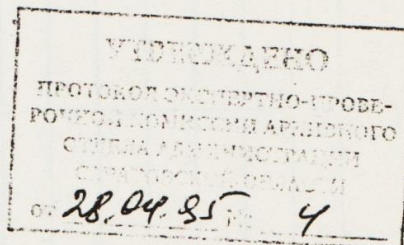 УТВЕРЖДЕНО
ПРОТОКОЛ ЭКСПЕРТНО-ПРОВЕ-
РОЧНОЙ КОМИССИИ АРХИВНОГО
ОТДЕЛА АДМИНИСТРАЦИИ
САРАТОВСКОЙ ОБЛАСТИ
от 28.04.95 № 4